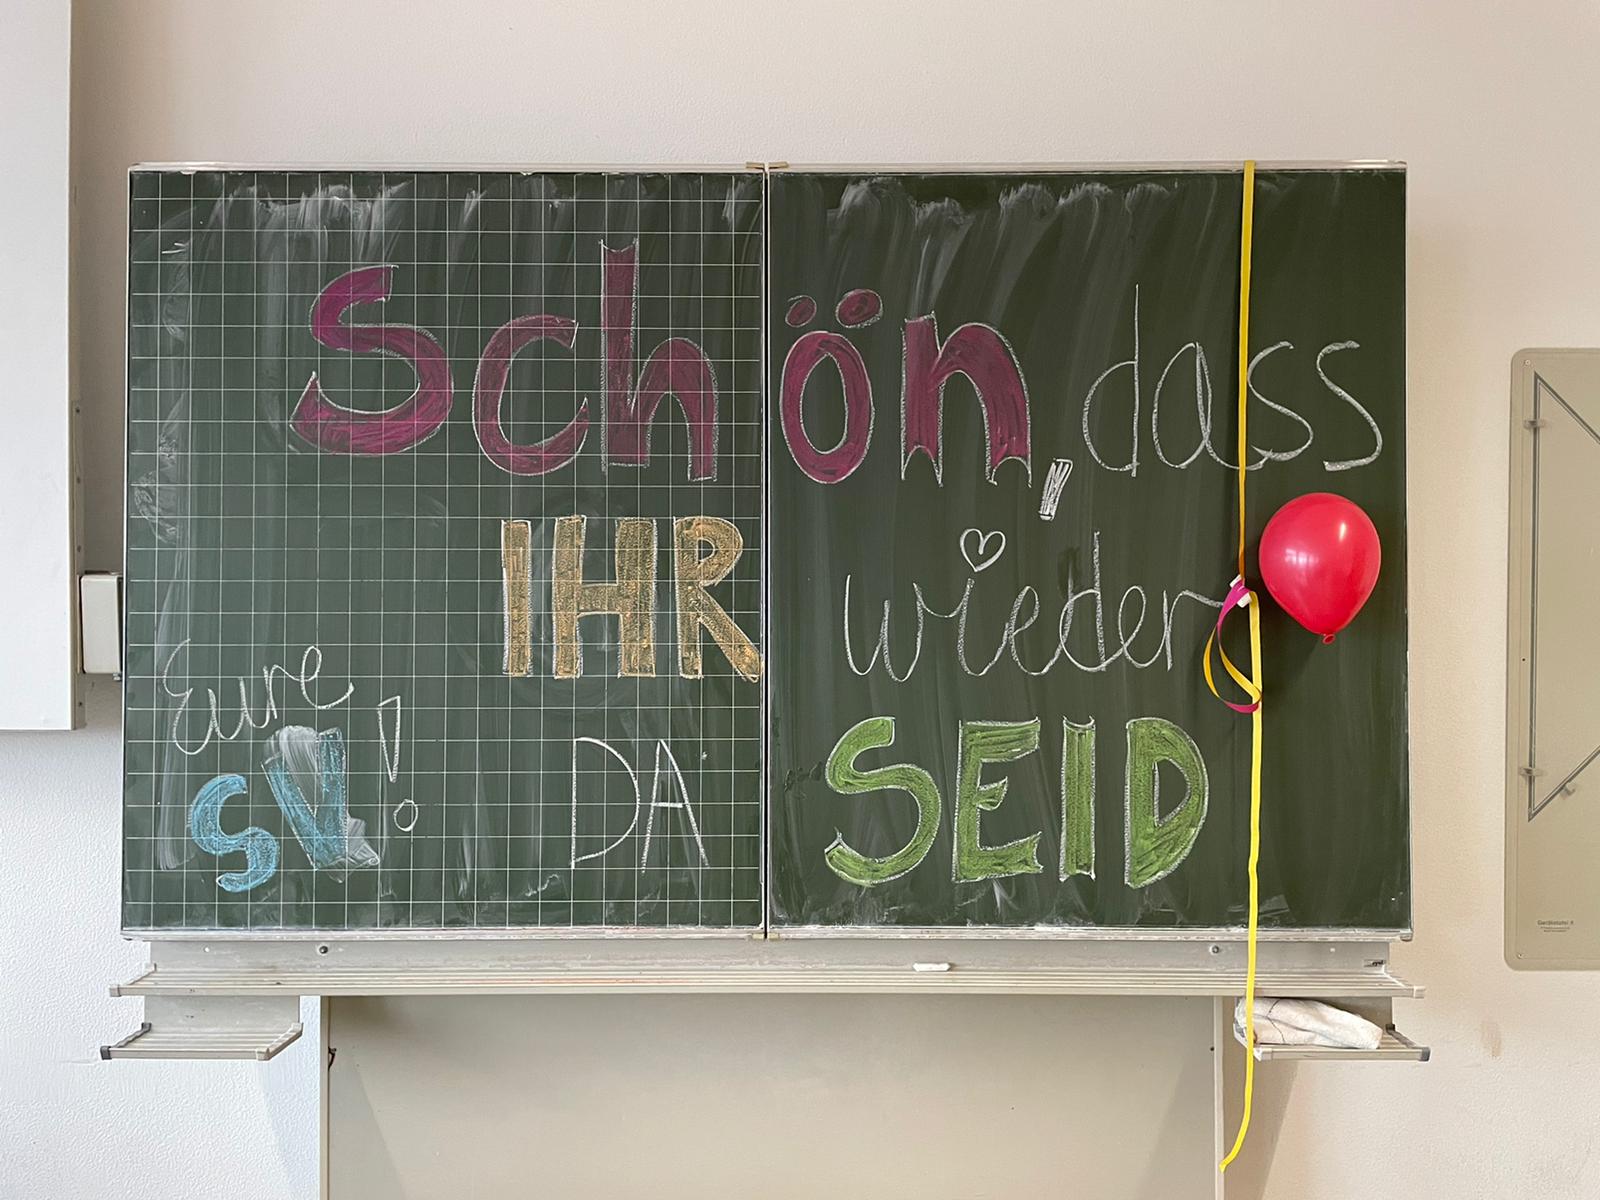 Schön, dass
IHR wieder
DA SEID
Eure
SV!